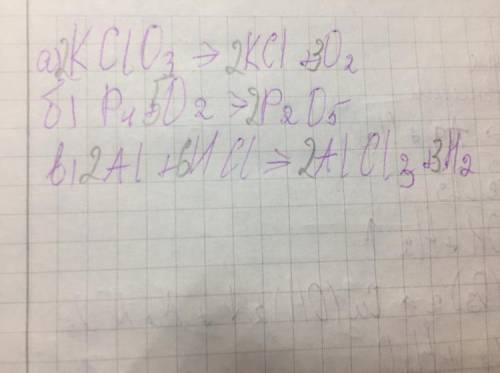 а) 2KClO3 → 2KCl 3O2
б) P4 5O2 → 2P2O5
в) 2Al + 6HCl → 2AlCl3 3H2